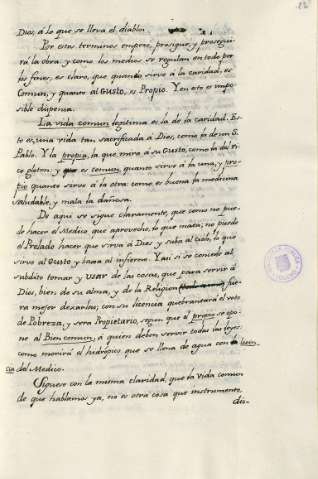 Dios, á lo que se lleva el diablo.
Por estos terminos empeze, prosigue, y proseguira
la obra. y como los medios se regulan en todo por
los fines, es claro, que quanto sirve á la caridad, es
Comun, y quanto al Gusto, es Propio. Y en esto es impo-
sible dispensa.
La vida comun legitima es la de la caridad. Es-
to es, una vida tan sacrificada á Dios, como la de un S.
Pablo. Y la propia, la que mira á su Gusto, como la del ri-
co gloton. y es comun quanto sirve á la una, y pro-
pio quanto sirve á la otra: como es buena la medicina
saludable, y mala la dañosa.
De aqui se sigue claramente, que como no pue-
de hacer el Medico que aproveche, lo que mata; no puede
el Prelado hacer que sirva á Dios y suba al cielo, lo que
sirve al Gusto y baxa al infierno. Y assi si se concede al
subdito tomar y usar de las cosas, que para servir á
Dios, bien de su alma, y de la Religion fue-
ra mejor dexarlas; con su licencia quebrantará el voto
de Pobreza, y sera Propietario, segun que el proprio se opo-
ne al Bien comun, á quien deben servir todas las leyes:
como morirá el hidropico que se llena de agua con licen-
cia del Medico.
Siguese con la misma claridad, que la vida comun
de que hablamos ya, no es otra cosa que instrumento
dis-